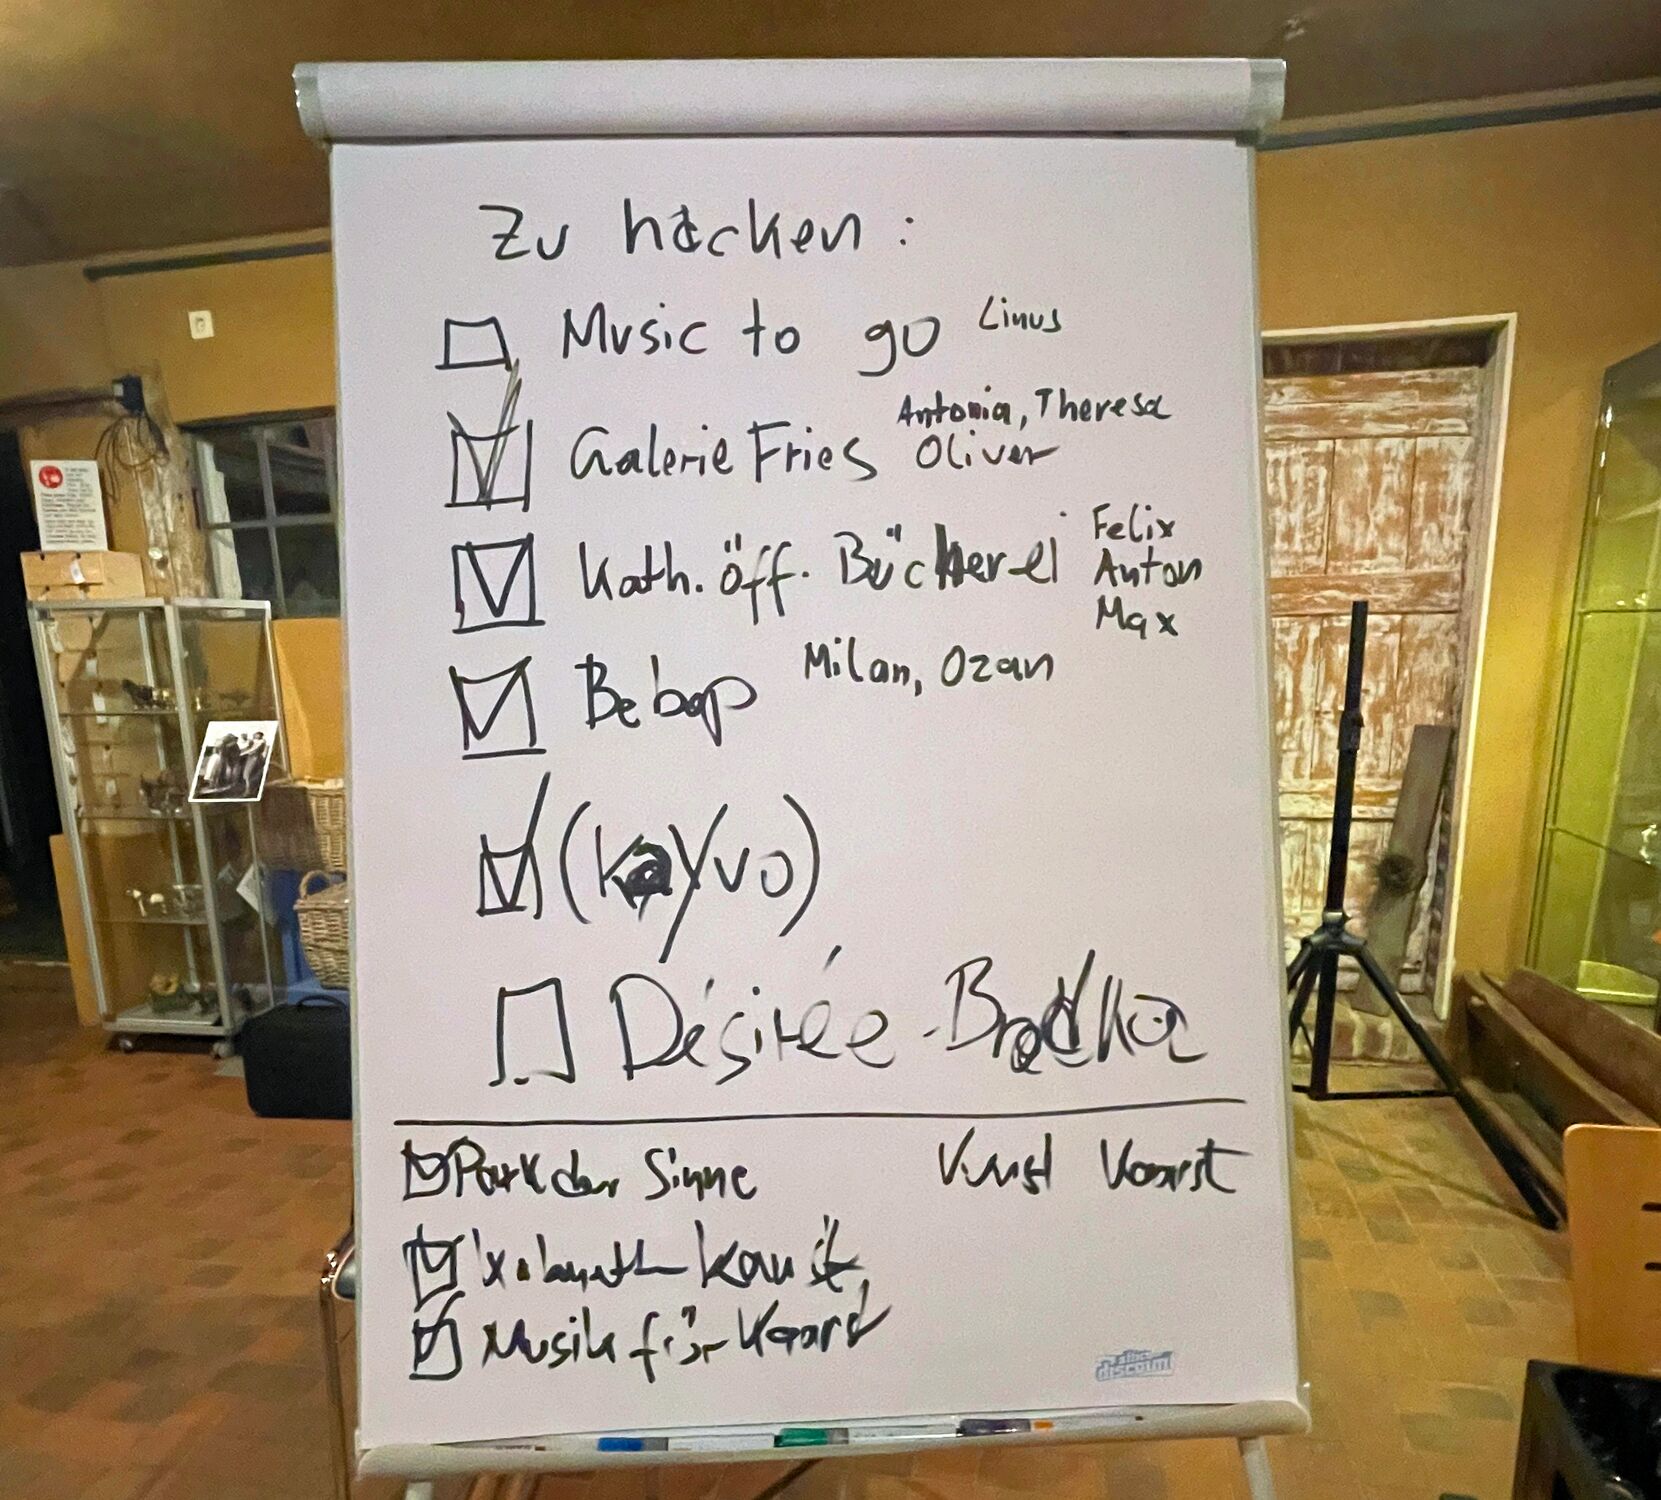 Zu hacken:
Music to go Linus
Galerie Fries Antonia, Theresa
Oliver
Kath. öff. Bücherei Felix
Anton
Max
Bebop Milan, Ozan
(Kayvo)
Désirée Bradka
Park der Sinne Kunst Kaarst
Musik für Kaarst
discount